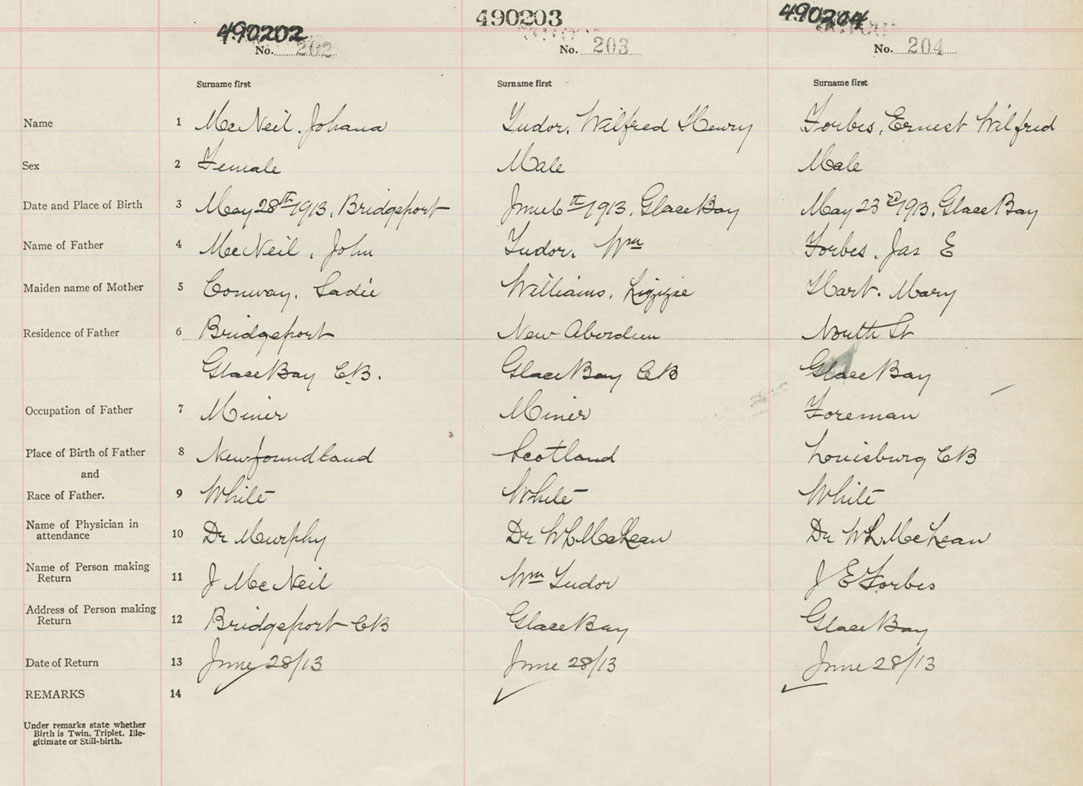 490202 490203 490204
No. 202 No. 203 No. 204
Surname first Surname first Surname first
Name 1 McNeil, Johana Tudor, Wilfred Henry Forbes, Ernest Wilfred
Sex 2 Female Male Male
Date and Place of Birth 3 May 28th/1913, Bridgeport June 6th/1913, Glace Bay May 23rd/1913, Glace Bay
Name of Father 4 McNeil, John Tudor, Wm Forbes, Jas E
Maiden name of Mother 5 Conway, Sadie Williams, Lizzie Hart. Mary
Residence of Father 6 Bridgeport New Aberdeen North St
Glace Bay C.B. Glace Bay CB Glace Bay
Occupation of Father 7 Miner Miner Foreman
Place of Birth of Father 8 Newfoundland Scotland Louisburg CB
and
Race of Father. 9 White White White
Name of Physician in
attendance 10 Dr Murphy Dr WL McLean Dr WL McLean
Name of Person making
Return 11 J McNeil Wm Tudor J E Forbes
Address of Person making
Return 12 Bridgeport CB Glace Bay Glace Bay
Date of Return 13 June 28/13 June 28/13 June 28/13
REMARKS 14
Under remarks state whether
Birth is Twin, Triplet, Ille-
gitimate or Still-birth.